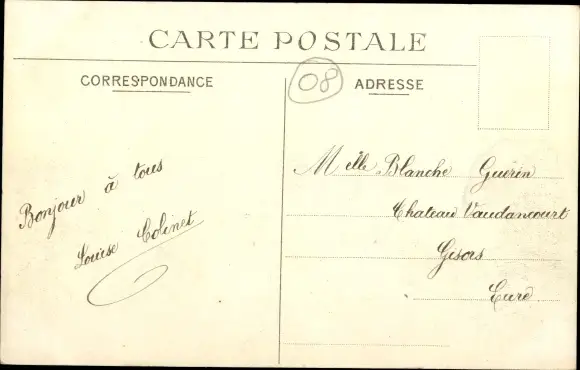 CARTE POSTALE
CORRESPONDANCE
08
ADRESSE
Bonjour à tous
Louise Colinet
Melle Blanche Guérin
Chateau Vaudancourt
Gisors
Eure